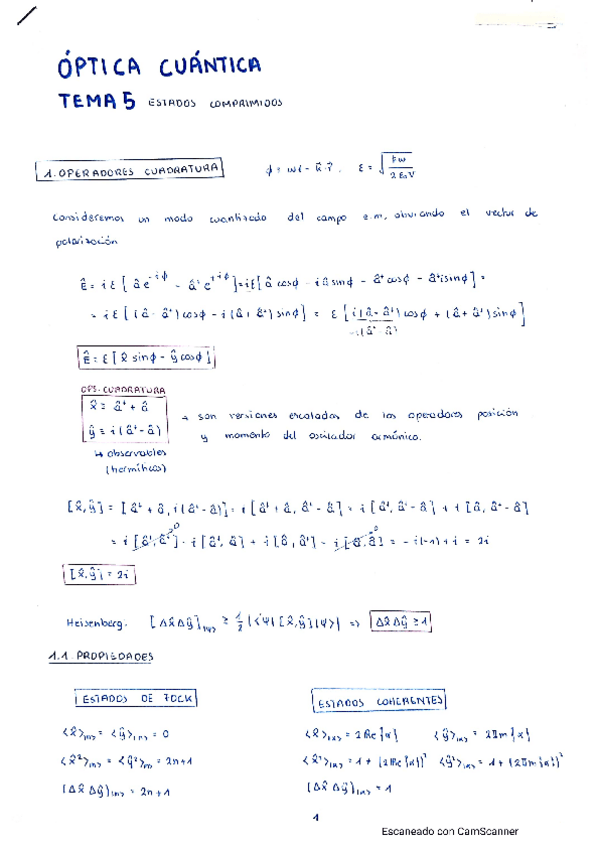 ÓPTICA CUÁNTICA
TEMA 5 ESTADOS COMPRIMIDOS
1. OPERADORES CUADRATURA φ = ωt - k̂·r̂. ε = √(ħω / 2ε₀V)
Consideremos un modo cuantizado del campo e.m, obviando el vector de
polarización
Ê = iε[âe^{-iφ} - â⁺e^{+iφ}] = iε[â cosφ - iâ sinφ - â⁺cosφ - â⁺i sinφ] =
= iε[(â - â⁺)cosφ - i(â + â⁺)sinφ] = ε[i(â - â⁺)cosφ + (â + â⁺)sinφ]
-i(â⁺ - â)
Ê = ε[x̂ sinφ - ŷ cosφ]
OPS. CUADRATURA
x̂ ≡ â⁺ + â
ŷ ≡ i(â⁺ - â)
→ son versiones escaladas de los operadores posición
y momento del oscilador armónico.
↳ observables
(hermíticos)
[x̂,ŷ] = [â⁺ + â, i(â⁺ - â)] = i[â⁺ + â, â⁺ - â] = i[â⁺, â⁺ - â] + i[â, â⁺ - â]
= i[â⁺,â⁺]⁰ - i[â⁺,â] + i[â,â⁺] - i[â,â]⁰ = -i(-1) + i = 2i
[x̂,ŷ] = 2i
Heisenberg. [Δx̂Δŷ]|ψ> ≥ ½|<ψ|[x̂,ŷ]|ψ>| => Δx̂Δŷ ≥ 1
1.1. PROPIEDADES
ESTADOS DE FOCK
<x̂>|n> = <ŷ>|n> = 0
<x̂²>|n> = <ŷ²>|n> = 2n+1
(Δx̂Δŷ)|n> = 2n+1
ESTADOS COHERENTES
<x̂>|α> = 2Re{α} <ŷ>|α> = 2Im{α}
<x̂²>|α> = 1 + (2Re{α})² <ŷ²>|α> = 1 + (2Im{α})²
(Δx̂Δŷ)|α> = 1
1
Escaneado con CamScanner